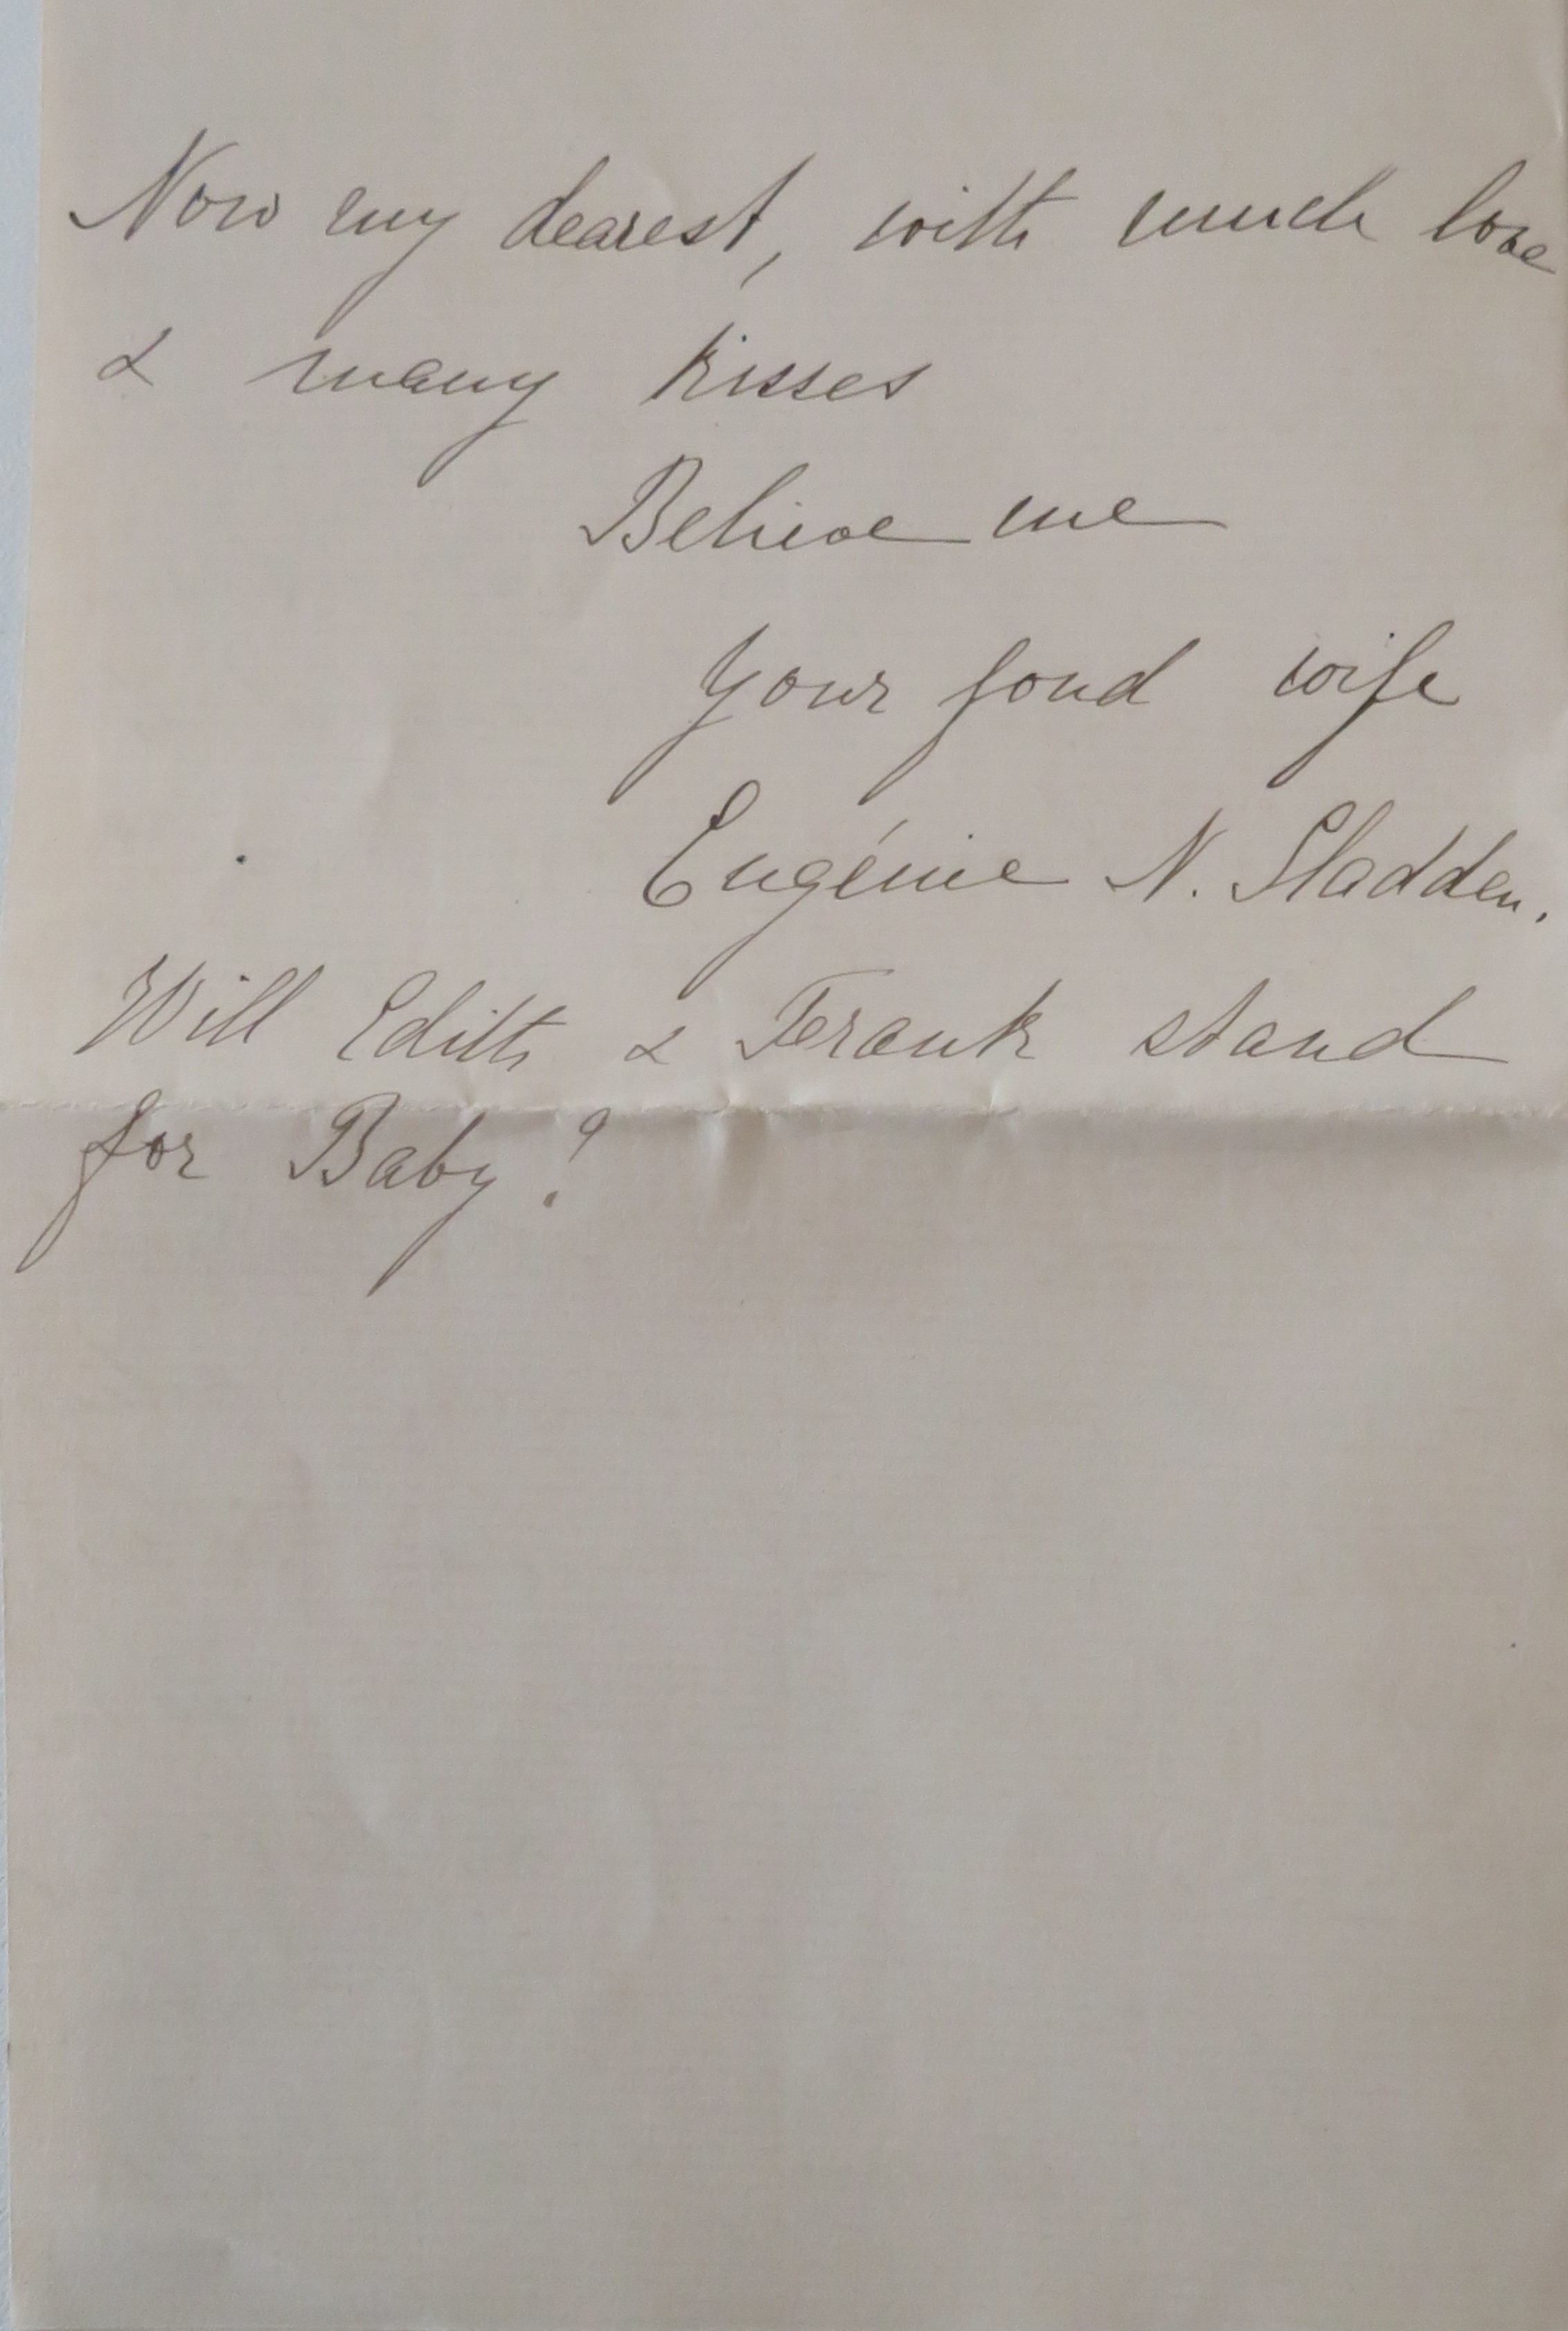 Now my dearest, with much love
& many kisses
Believe me
your fond wife
Eugénie N. Sladden.
Will Edith & Frank stand
for Baby?